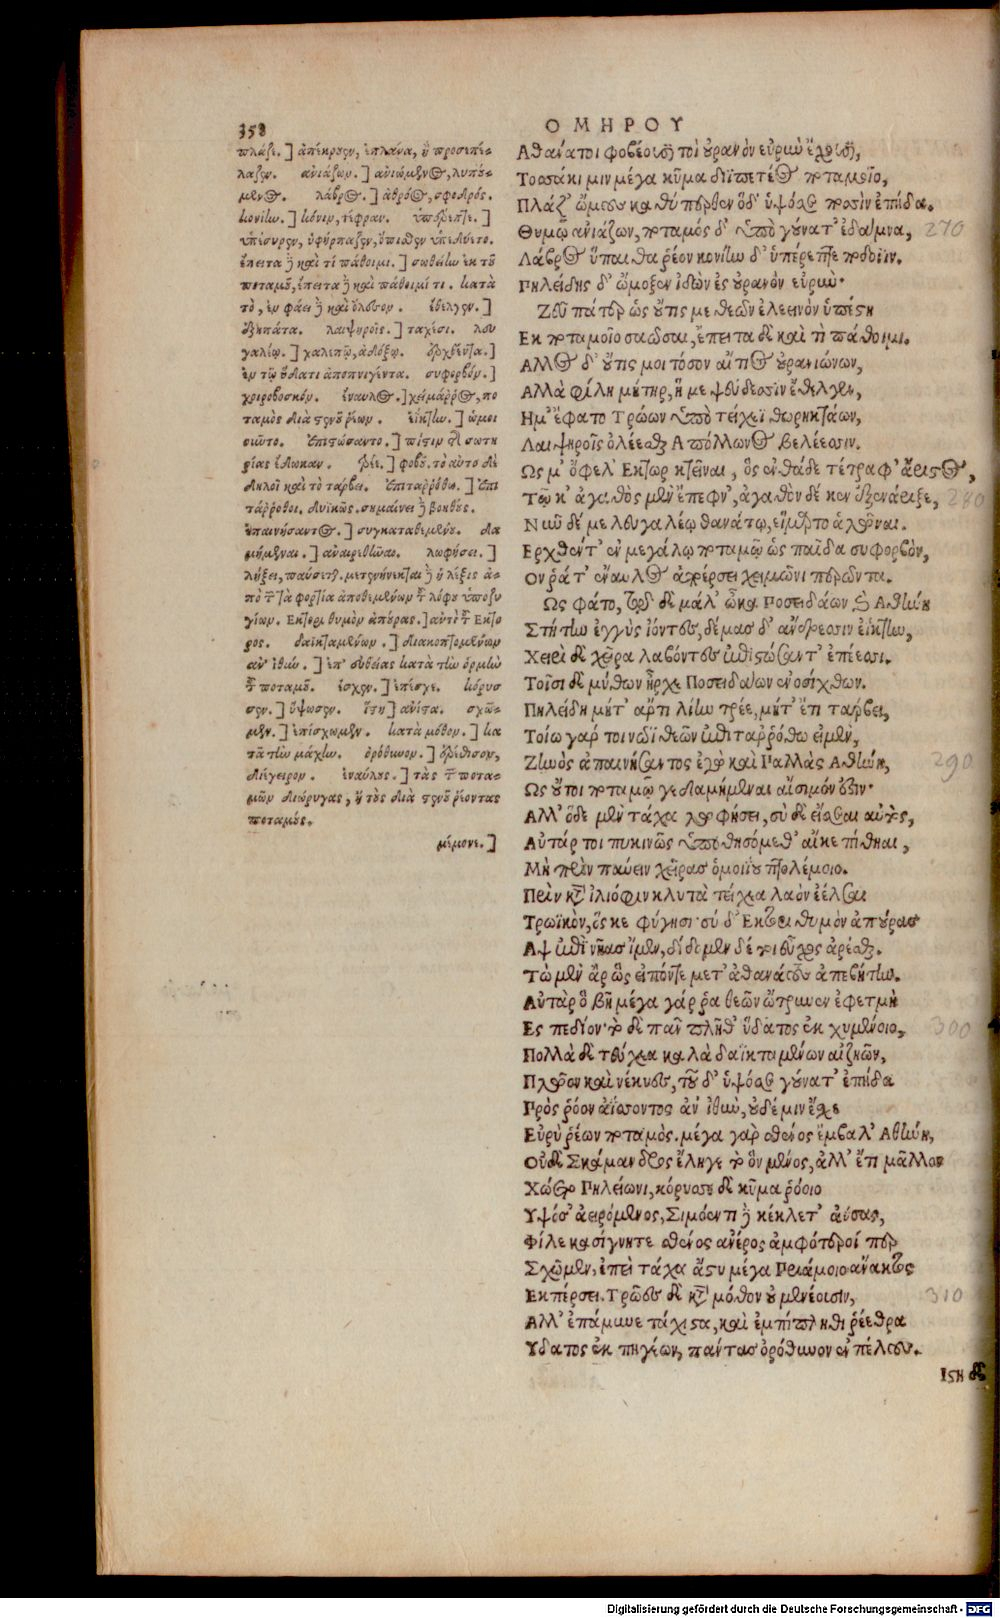 358
ΟΜΗΡΟΥ
πλάζε.] ἀπέκρουσεν, ἐπλάνα, ἢ προσεπέ-
λαζεν. ἀνιάζων.] ἀνιώμενος, λυπού-
μενος. λάβρος.] ἀθρόος, σφοδρός.
κονίην.] κόνιν, τέφραν. ὑπέρεπτε.]
ὑπέσυρεν, ὑφήρπαζεν, ὄπισθεν ὑπελύετο.
ἔπειτα δὲ καὶ τί πάθοιμι.] σωθείην ἐκ τοῦ
ποταμοῦ, ἔπειτα δὲ καὶ πάθοιμί τι. κατὰ
τὸ, ἐν φάει δὲ καὶ ὄλεσσον. ἔθελγεν.]
ἐξηπάτα. λαιψηροῖς.] ταχέσι. λευ
γαλέῳ.] χαλεπῷ, ἀδόξῳ. ἐρχθέντα.]
ἐν τῷ ὕδατι ἀποπνιγέντα. συφορβόν.]
χοιροβοσκόν. ἔναυλος.] χείμαρρος, πο
ταμὸς διὰ στενοῦ ῥέων. ἐΐκτην.] ὡμοι
οῦντο. ἐπιστώσαντο.] πίστιν τῆς σωτη
ρίας ἔδωκαν. τρέε.] φοβοῦ. τὸ αὐτὸ δὲ
δηλοῖ καὶ τὸ τάρβει. ἐπιταρρόθω.] ἐπι
τάρροθοι. δυϊκῶς. σημαίνει δὲ βοηθούς.
ἐπαινήσαντος.] συγκαταθεμένου. δα
μήμεναι.] ἀναιρεθῆναι. λωφήσει.]
λήξει, παύσεται. μετενήνεκται δὲ ἡ λέξις ἀ-
πὸ τῶν τὰ φορτία ἀποθεμένων τοῦ λόφου ὑποζυ
γίων. Ἕκτορι θυμὸν ἀπούρας.] αὐτὸν τοῦ Ἕκτο
ρος. δαϊκταμένων.] διακοπτομένων
ἀν' ἰθύν.] ἐπ' εὐθείας κατὰ τὴν ὁρμὴν
τοῦ ποταμοῦ. ἴσχεν.] ἐπέσχε. κόρυσ
σεν.] ὕψωσεν. ἵστη] ἀνίστα. σχῶ-
μεν.] ἐπίσχωμεν. κατὰ μόθον.] κα
τὰ τὴν μάχην. ὀρόθυνον.] ἐρέθισον,
διέγειρον. ἐναύλους.] τὰς τῶν ποτα-
μῶν διώρυγας, ἢ τοὺς διὰ στενοῦ ῥέοντας
ποταμούς.
μέμονε.]
Αθανάτοι φοβέουσι τοὶ οὐρανὸν εὐρὺν ἔχουσι,
Τοσσάκι μιν μέγα κῦμα διϊπετέος ποταμοῖο,
Πλάζ' ὤμους καθύπερθεν ὅδ' ὑψόσε ποσὶν ἐπήδα.
Θυμῷ ἀνιάζων, ποταμὸς δ' ὑπὸ γούνατ' ἐδάμνα, 270
Λάβρος ὕπαιθα ῥέον κονίην δ' ὑπέρεπτε ποδοῖιν.
Πηλείδης δ' ὤμωξεν ἰδὼν ἐς οὐρανὸν εὐρύν·
Ζεῦ πάτερ ὡς οὔτις με θεῶν ἐλεεινὸν ὑπέστη
Εκ ποταμοῖο σαῶσαι, ἔπειτα δὲ καὶ τὶ πάθοιμι.
Αλλος δ' οὔτις μοι τόσον αἴτιος οὐρανιώνων,
Αλλὰ φίλη μήτηρ, ἥ με ψεύδεσσιν ἔθελγεν,
Ημ' ἔφατο Τρώων ὑπὸ τείχεϊ θωρηκτάων,
Λαιψηροῖς ὀλέεσθαι Απόλλωνος βελέεσσιν.
Ως μ' ὄφελ' Εκτωρ κτεῖναι, ὃς ἐνθάδε τέτραφ' ἄριστος,
Τῷ κ' ἀγαθὸς μὲν ἔπεφν', ἀγαθὸν δέ κεν ἐξενάριξε, 280
Νῦν δέ με λευγαλέῳ θανάτῳ, εἵμαρτο ἁλῶναι.
Ερχθέντ' ἐν μεγάλῳ ποταμῷ ὡς παῖδα συφορβὸν,
Ον ῥά τ' ἔναυλος ἀποέρσει χειμῶνι περῶντα.
Ως φάτο, τῷ δὲ μάλ' ὦκα Ποσειδάων καὶ Αθήνη
Στήτην ἐγγὺς ἰόντες, δέμας δ' ἄνδρεσσιν ἐΐκτην,
Χειρὶ δὲ χεῖρα λαβόντες ἐπιστώσαντ' ἐπέεσσι.
Τοῖσι δὲ μύθων ἦρχε Ποσειδάων ἐνοσίχθων.
Πηλείδη μήτ' ἄρτι λίην τρέε, μήτ' ἔτι τάρβει,
Τοίω γάρ τοι νῶϊ θεῶν ἐπιταῤῥόθω εἰμὲν,
Ζηνὸς ἐπαινήσαντος ἐγὼ καὶ Παλλὰς Αθήνη, 290
Ως οὔτοι ποταμῷ γε δαμήμεναι αἴσιμόν ἐστιν·
Αλλ' ὅδε μὲν τάχα λωφήσει, σὺ δὲ εἴσεαι αὐτὸς,
Αὐτάρ τοι πυκινῶς ὑποθησόμεθ' αἴκε πίθηαι,
Μὴ πρὶν παύειν χεῖρας ὁμοιΐου πτολέμοιο.
Πρὶν κατ' ἰλιόφιν κλυτὰ τείχεα λαὸν ἐέλσαι
Τρωϊκὸν, ὅς κε φύγησι· σύ δ' Εκτορι θυμὸν ἀπούρας
Αψ ἐπὶ νῆας ἴμεν, δίδομεν δέ τοι εὖχος ἀρέσθαι.
Τὼ μὲν ἄρ ὣς εἰπόντε μετ' ἀθανάτους ἀπεβήτην.
Αὐτὰρ ὃ βῆ μέγα γάρ ῥα θεῶν ὤτρυνεν ἐφετμὴ
Ες πεδίον· τὸ δὲ πᾶν πλῆθ' ὕδατος ἐκ χυμένοιο, 300
Πολλὰ δὲ τεύχεα καλὰ δαϊκταμένων αἰζηῶν,
Πλῶον καὶ νέκυες, τοῦ δ' ὑψόσε γούνατ' ἐπήδα
Πρὸς ῥόον ἀΐσσοντος ἀν' ἰθὺν, οὐδέ μιν ἔσχε
Εὐρὺ ῥέων ποταμὸς. μέγα γὰρ σθένος ἔμβαλ' Αθήνη,
Οὐδὲ Σκάμανδρος ἔληγε τὸ ὃν μένος, ἀλλ' ἔτι μᾶλλον
Χώετο Πηλείωνι, κόρυσσε δὲ κῦμα ῥόοιο
Υψόσ' ἀειρόμενος, Σιμόεντι δὲ κέκλετ' ἀύσας,
Φίλε κασίγνητε σθένος ἀνέρος ἀμφότεροί περ
Σχῶμεν, ἐπεὶ τάχα ἄστυ μέγα Πριάμοιο ἄνακτος
Εκπέρσει. Τρῶες δὲ κατὰ μόθον οὐ μενέουσιν, 310
Αλλ' ἐπάμυνε τάχιστα, καὶ ἐμπίπληθι ῥέεθρα
Υδατος ἐκ πηγέων, πάντας ὀρόθυνον ἐναύλους.
Ιστη δὲ
Digitalisierung gefördert durch die Deutsche Forschungsgemeinschaft - DFG